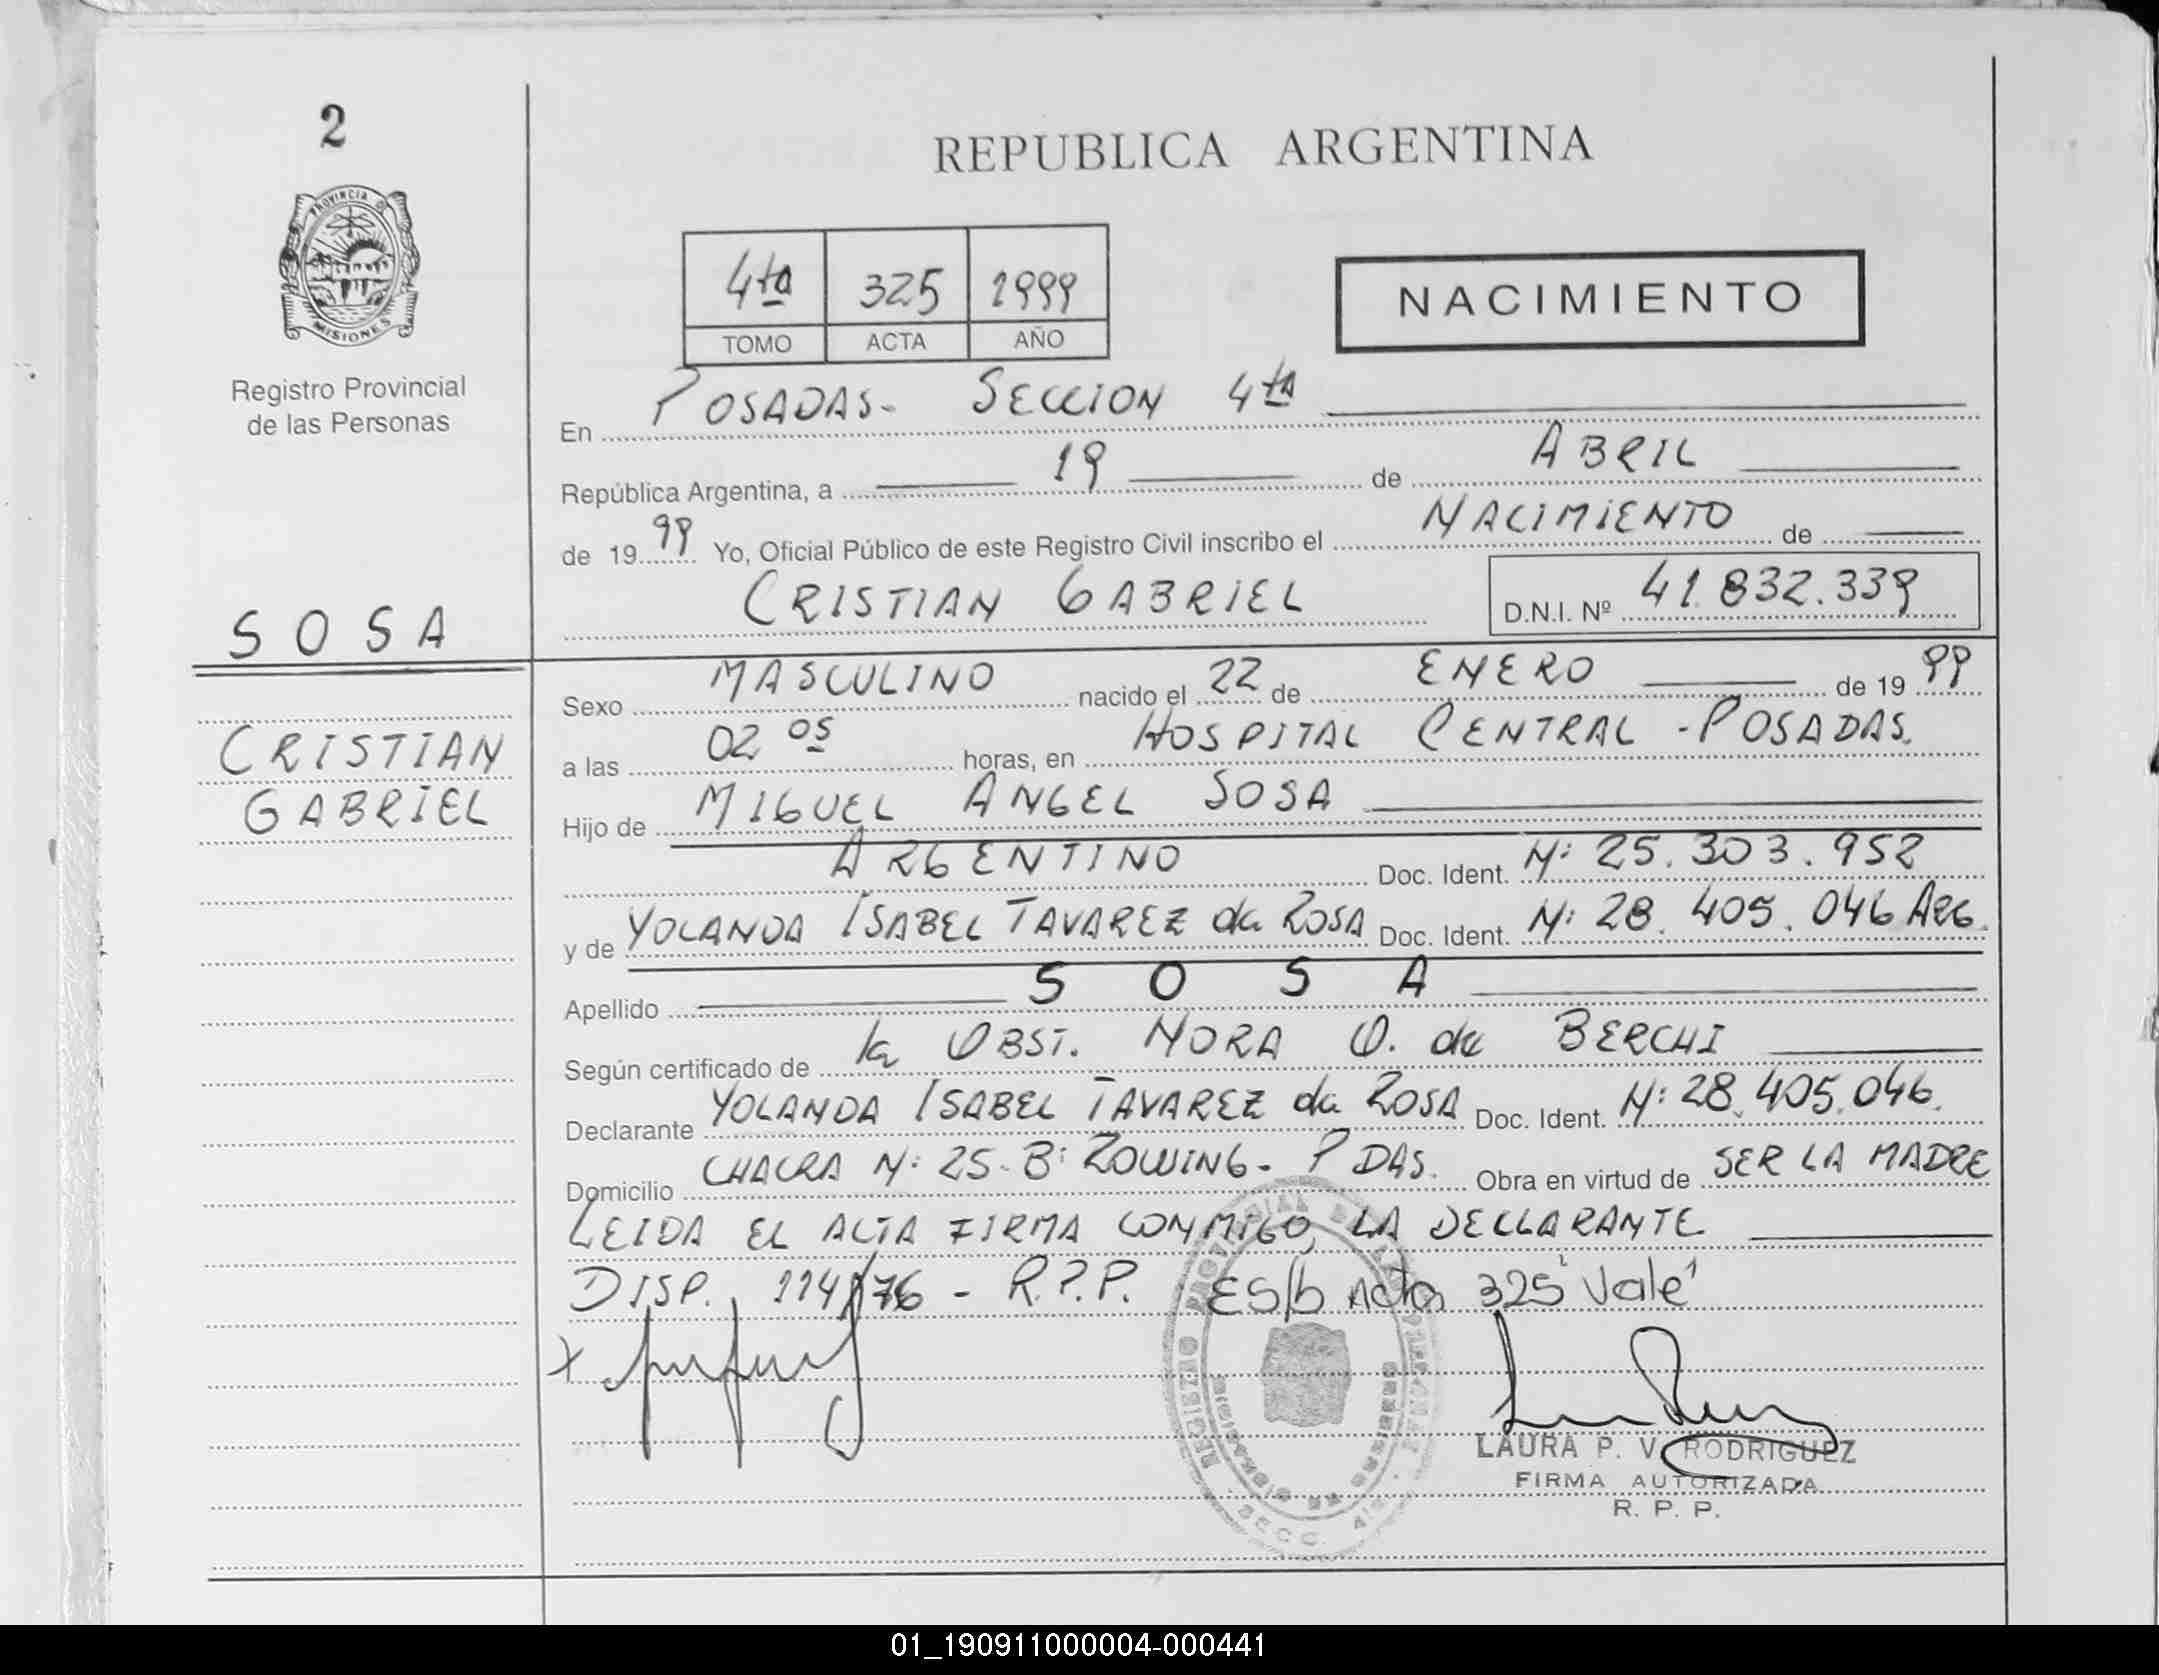 2
REPUBLICA ARGENTINA
PROVINCIA DE
MISIONES
Registro Provincial
de las Personas
4ta 325 1999
TOMO ACTA AÑO
NACIMIENTO
En POSADAS- SECCION 4ta
República Argentina, a 19 de ABRIL
de 1999 Yo, Oficial Público de este Registro Civil inscribo el NACIMIENTO de
CRISTIAN GABRIEL D.N.I. Nº 41.832.339
SOSA
CRISTIAN
GABRIEL
Sexo MASCULINO nacido el 22 de ENERO de 1999
a las 02 05 horas, en HOSPITAL CENTRAL - POSADAS.
Hijo de MIGUEL ANGEL SOSA
ARGENTINO Doc. Ident. N: 25.303.952
y de YOLANDA ISABEL TAVAREZ da ROSA Doc. Ident. N: 28.405.046 ARG.
Apellido SOSA
Según certificado de la OBST. NORA O. de BERCHI
Declarante YOLANDA ISABEL TAVAREZ da ROSA Doc. Ident. N: 28.405.046.
Domicilio CHACRA N: 25- B: ROWING- PDAS. Obra en virtud de SER LA MADRE
LEIDA EL ACTA FIRMA CONMIGO, LA DECLARANTE
DISP. 114/76 - R.P.P. ES/b Acta 325 "Vale"
X
LAURA P. V. RODRIGUEZ
FIRMA AUTORIZADA
R. P. P.
01_190911000004-000441